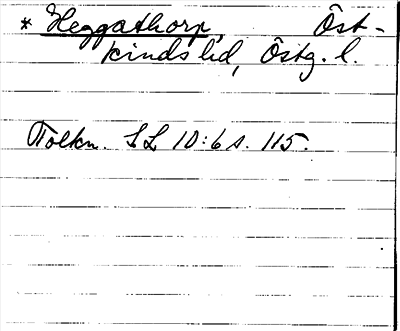 * Heggathorp, Öst-
kinds hd, Östg. l.
Tolkn. SL 10:6 s. 115.